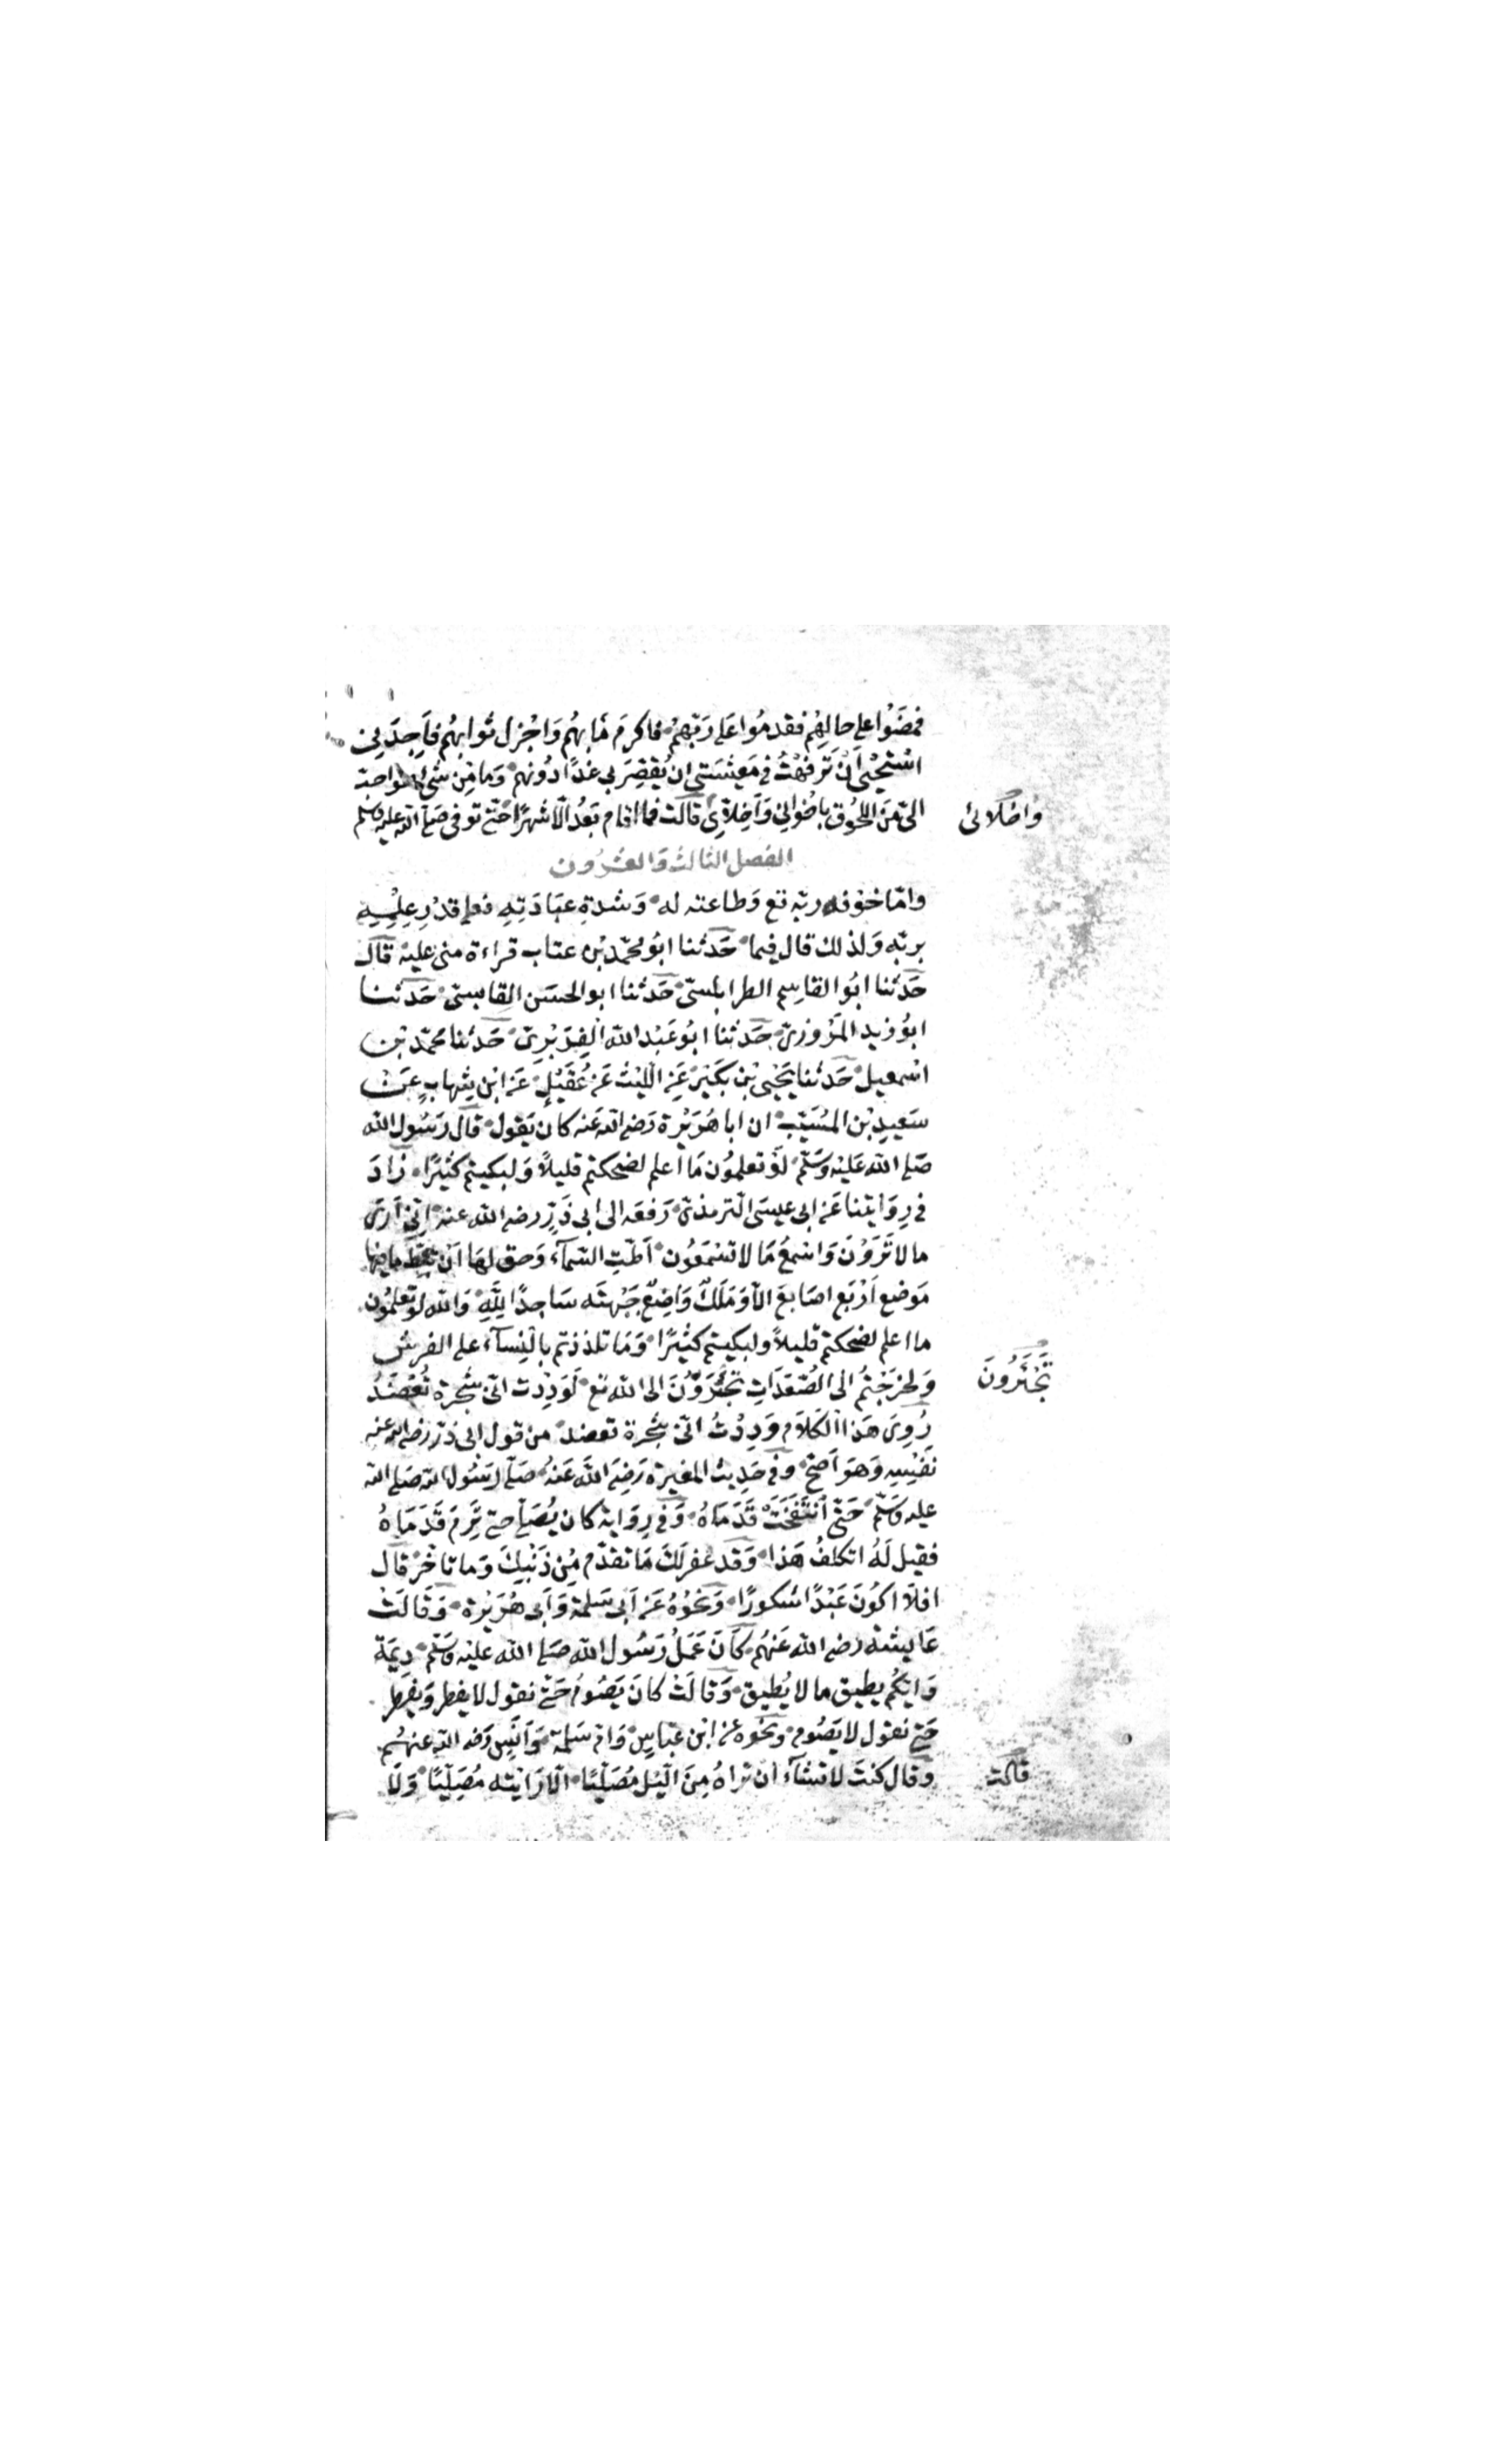 فمضَوْا على حالهِمْ فقدمُوا عَلى رَبّهِمْ فاكرمَ مَابَهُم وَاجْزل ثوابهُم فاَجِدَنِى
اسْتحْيى اَنْ تَرَفّهْتُ فى مَعِيشَتى ان يُقصِّرَ بى غدًا دُونهم وَما مِن شئ هوَ احبّ
الىّ مِنَ اللحُوق باخوانى وَاَخِلاّئِى قالت فما اقام بَعْدُ الّا شهْرًا حَتّى توفى صَلّى الله عليه وسلم
وَاخلّائى
الفصل الثالث وَالعشرُون
وامّا خوْفه ربّه تع وَطاعته له وَشدةِ عبَادَتِهِ فعلى قدْرِ عِلمِهِ
بربّه وَلذلك قال فيما حَدثنا ابُو محمّد بْن عتاب قراءة منى عليه قال
حَدثنا ابُوا القاسِم الطرابلسىّ حَدثنا ابو الحسَن القابسىّ حَدثنا
ابوُ زيد المَرْوزىّ حَدثنا ابُو عَبْد الله الفِرَبْرِىّ حَدثنا محمّد بْن
اسْمعيل حَدثنا يَحْيى بْن بكَيْر عَنِ اللّيْث عَن عُقَيْلٍ عَن ابْن شِهابٍ عَنْ
سَعيدِ بْن المُسَيّب ان ابا هُرَيْرة رَضى الله عَنه كان يَقول قال رَسُول الله
صَلى الله عَليْه وَسَلّم لوْ تعلمُون مَا اَعلم لضحكتم قليلاً وَلبكيتم كثيرًا زادَ
فى رِوَايتنا عَن ابى عيسَى الترمذىّ رَفعَه الى ابى ذَرٍّ رضى الله عنه اِنّى اَرَى
ما لا تَرَوْنَ وَاسْمعُ مَا لا تسْمَعُون اَطّتِ السّمآء وَحق لهَا اَنْ تئِطّ ما فيها
مَوضع اَرْبَع اصَابعَ الّا وَمَلَكٌ وَاضِعٌ جَبْهتَه سَاجدًا لِلّهِ وَالله لوْ تعْلمُون
ما اعلم لضحكتم قليلاً ولبكيتم كثيرًا وَمَا تلذذتم بالنِسآء على الفرش
وَلخرَجْتُم الى الصُّعَدَاتِ تَجْئَرُوُنَ الى الله تع لَوَدِدت انّى شجَرة تُعْضَدُ
تَجْئَرُونَ
رُوِىَ هَذا الكَلاَم وَدِدْتُ انّى شجَرة تعضد من قول ابى ذرّ رضى الله عنه
نَفْسِهِ وَهوَ اَصَحّ وفى حَدِيث المغيرة رَضِىَ الله عَنهُ صَلّى رَسُول الله صَلى الله
عليه وَسَلّم حَتّى اَنْتَفَخَتْ قَدَمَاهُ وَفى رِوَاية كان يُصَلّى حتّى تَرِمَ قَدَمَاهُ
فقيل لَهُ اتكلفُ هَذا وَقد غفر لَكَ مَا تقدّم مِن ذَنْبِكَ وَما تاَخرَ قال
افلاَ اكوُنَ عَبْدًا شكورًا وَنَحْوُهُ عَن اَبى سَلمة وَاَبى هُرَيْرة وَقَالَتْ
عَايشة رضى الله عَنهُم كَانَ عَمَلُ رَسُول الله صَلى الله عليْه وَسَلّم دِيمَة
وَايّكُم يطيق ما لا يُطيق وَقالَتْ كانَ يَصُومُ حَتّى نقول لا يفطر وَيفطر
حَتّى نقول لا يَصُوم وَنحْوه عَن ابْن عبّاسٍ وَامّ سَلمَة وَاَنَسٍ رَضى الله عنهُم
وَقال كنتَ لا تشآء ان تراهُ مِنَ اليْل مُصَلّيًا الّا رَايْته مُصَلّيًا وَلَا
قالت